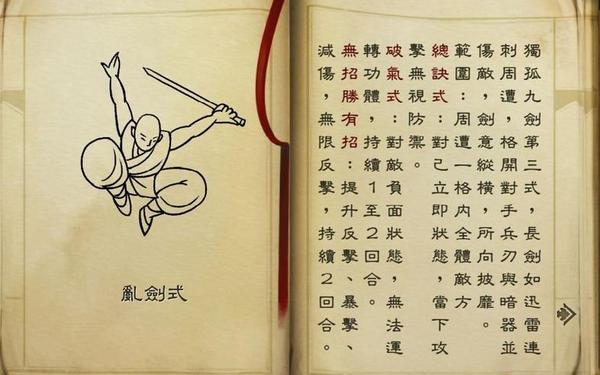 亂劍式
獨孤九劍第三式，長劍如迅雷連
刺周遭，格開對手兵刃與暗器並
傷敵，劍意縱橫，所向披靡。
範圍：周遭一格內全體敵方
總訣式：對己立即狀態，當下攻
擊無視防禦。
破氣式：對敵負面狀態，無法運
轉功體，持續1至2回合。
無招勝有招：提升反擊、暴擊、
減傷，無限反擊，持續2回合。